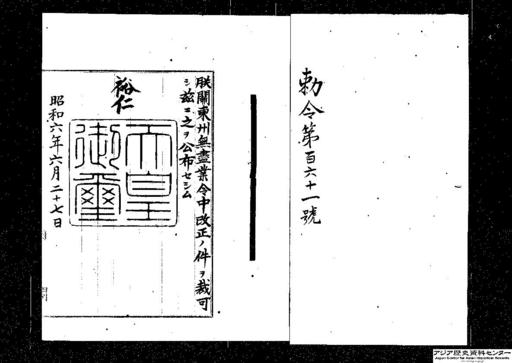 勅令第百六十一號
朕關東州無盡業令中改正ノ件ヲ裁可
シ茲ニ之ヲ公布セシム
裕仁
天皇
御璽
昭和六年六月二十七日
アジア歴史資料センター
Japan Center for Asian Historical Records